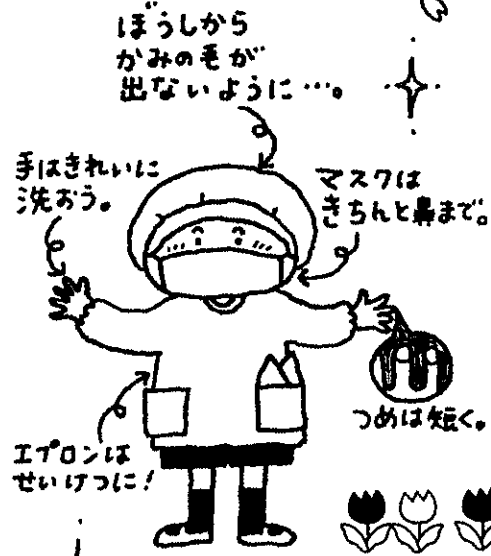 ぼうしから
かみの毛が
出ないように…。
手はきれいに
洗おう。
マスクは
きちんと鼻まで。
つめは短く。
エプロンは
せいけつに!